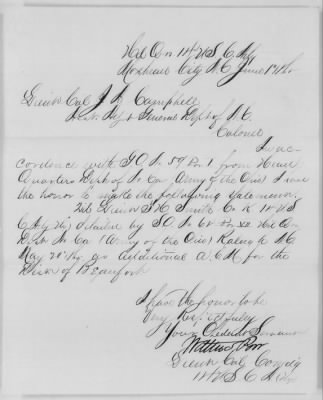 Hd Qrs 14th U S C Arty
Morehead City N.C. June 1st 1865
Lieut Col J A Campbell
Asst Adjt General Dept of N.C.
Colonel
In ac-
cordance with G.O. No 59 Par 1 from Head
Quarters Dept of N. Ca Army of the Ohio I have
the honor to make the following statement,
2nd Lieut S. H. Smith Co K 14th U S
C Arty detailed by S.O. No Hd Qrs
Dept N. Ca (Army of the Ohio) Raleigh N.C.
May as Additional A.C.M. for the
of Beaufort
I have the honor to be
Very Respectfully
Your Obedient Servant
Lieut Col Comd'g
14th U S C